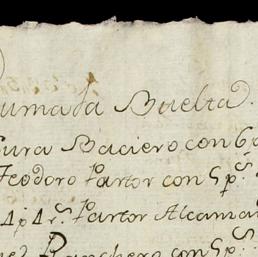 uma da Buelta.
Cura Baciero con 6 p
Teodoro Partor con 5 p.s
1 p 4 r.s Partor Alcama
Ranchero con 5 p.s